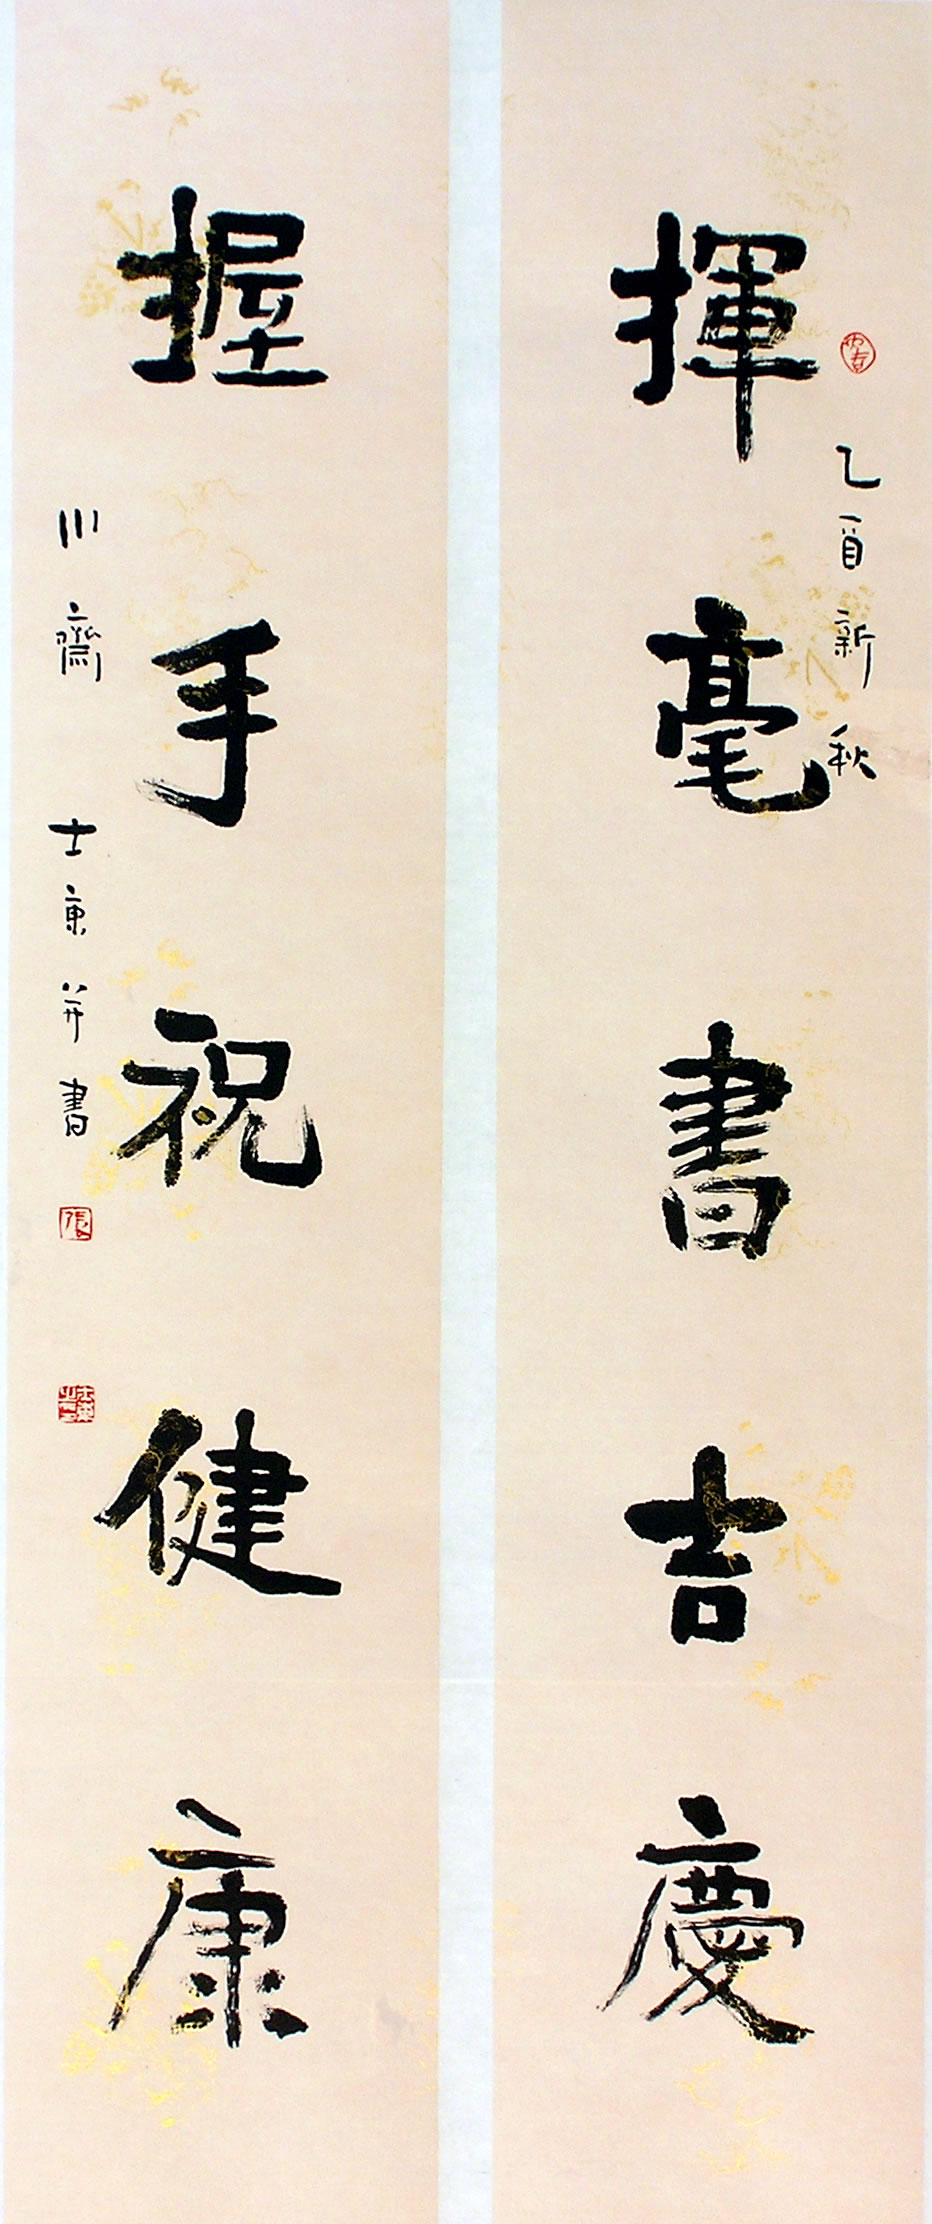 揮毫書吉慶
乙酉新秋
握手祝健康
川齋 士東並書